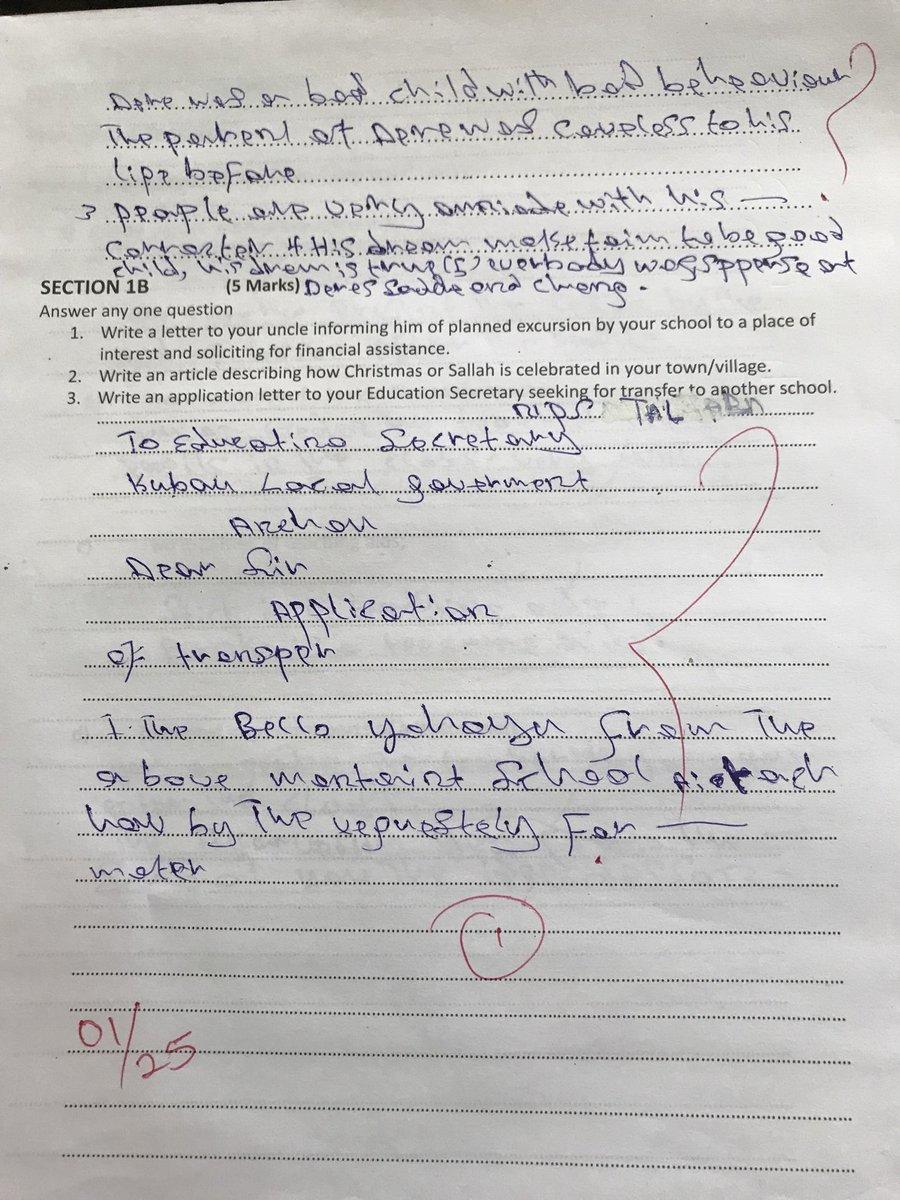 Dere was a bad child with bad behaviour
The parent of Dere was careless to his
lipe before
3 people are very with his —
Correcter 4 His dream make him to be good
child, his drem is true (5) everbody was sppense at
Deres sadde and cheng.
SECTION 1B (5 Marks)
Answer any one question
1. Write a letter to your uncle informing him of planned excursion by your school to a place of
interest and soliciting for financial assistance.
2. Write an article describing how Christmas or Sallah is celebrated in your town/village.
3. Write an application letter to your Education Secretary seeking for transfer to another school.
To Educatino Secretary
Kubau Local goverment
Anchau
Dear Sir
Application
of transper
I. The Bello yahaya from The
above school
by The for —
mater
1
01/25